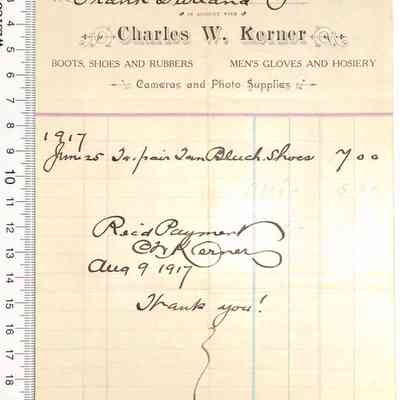 Frank Garland
IN ACCOUNT WITH
Charles W. Kerner
BOOTS, SHOES AND RUBBERS MEN'S GLOVES AND HOSIERY
Cameras and Photo Supplies
1917
June 25 To pair Tan Bluch. Shoes 7 00
Rec'd Payment
C W Kerner
Aug 9 1917
Thank you!
4
5
6
7
8
9
10
11
12
13
14
15
16
17
18